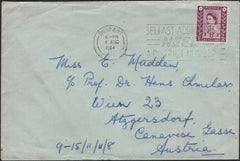 BELFAST
4 AUG
1964
BELFAST
Miss E. Madden,
c/o Prof. Dr. Hans Chmelar
Wien 23
Atzgersdorf
Canevese Gasse
Austria.
9-15/11/6/8